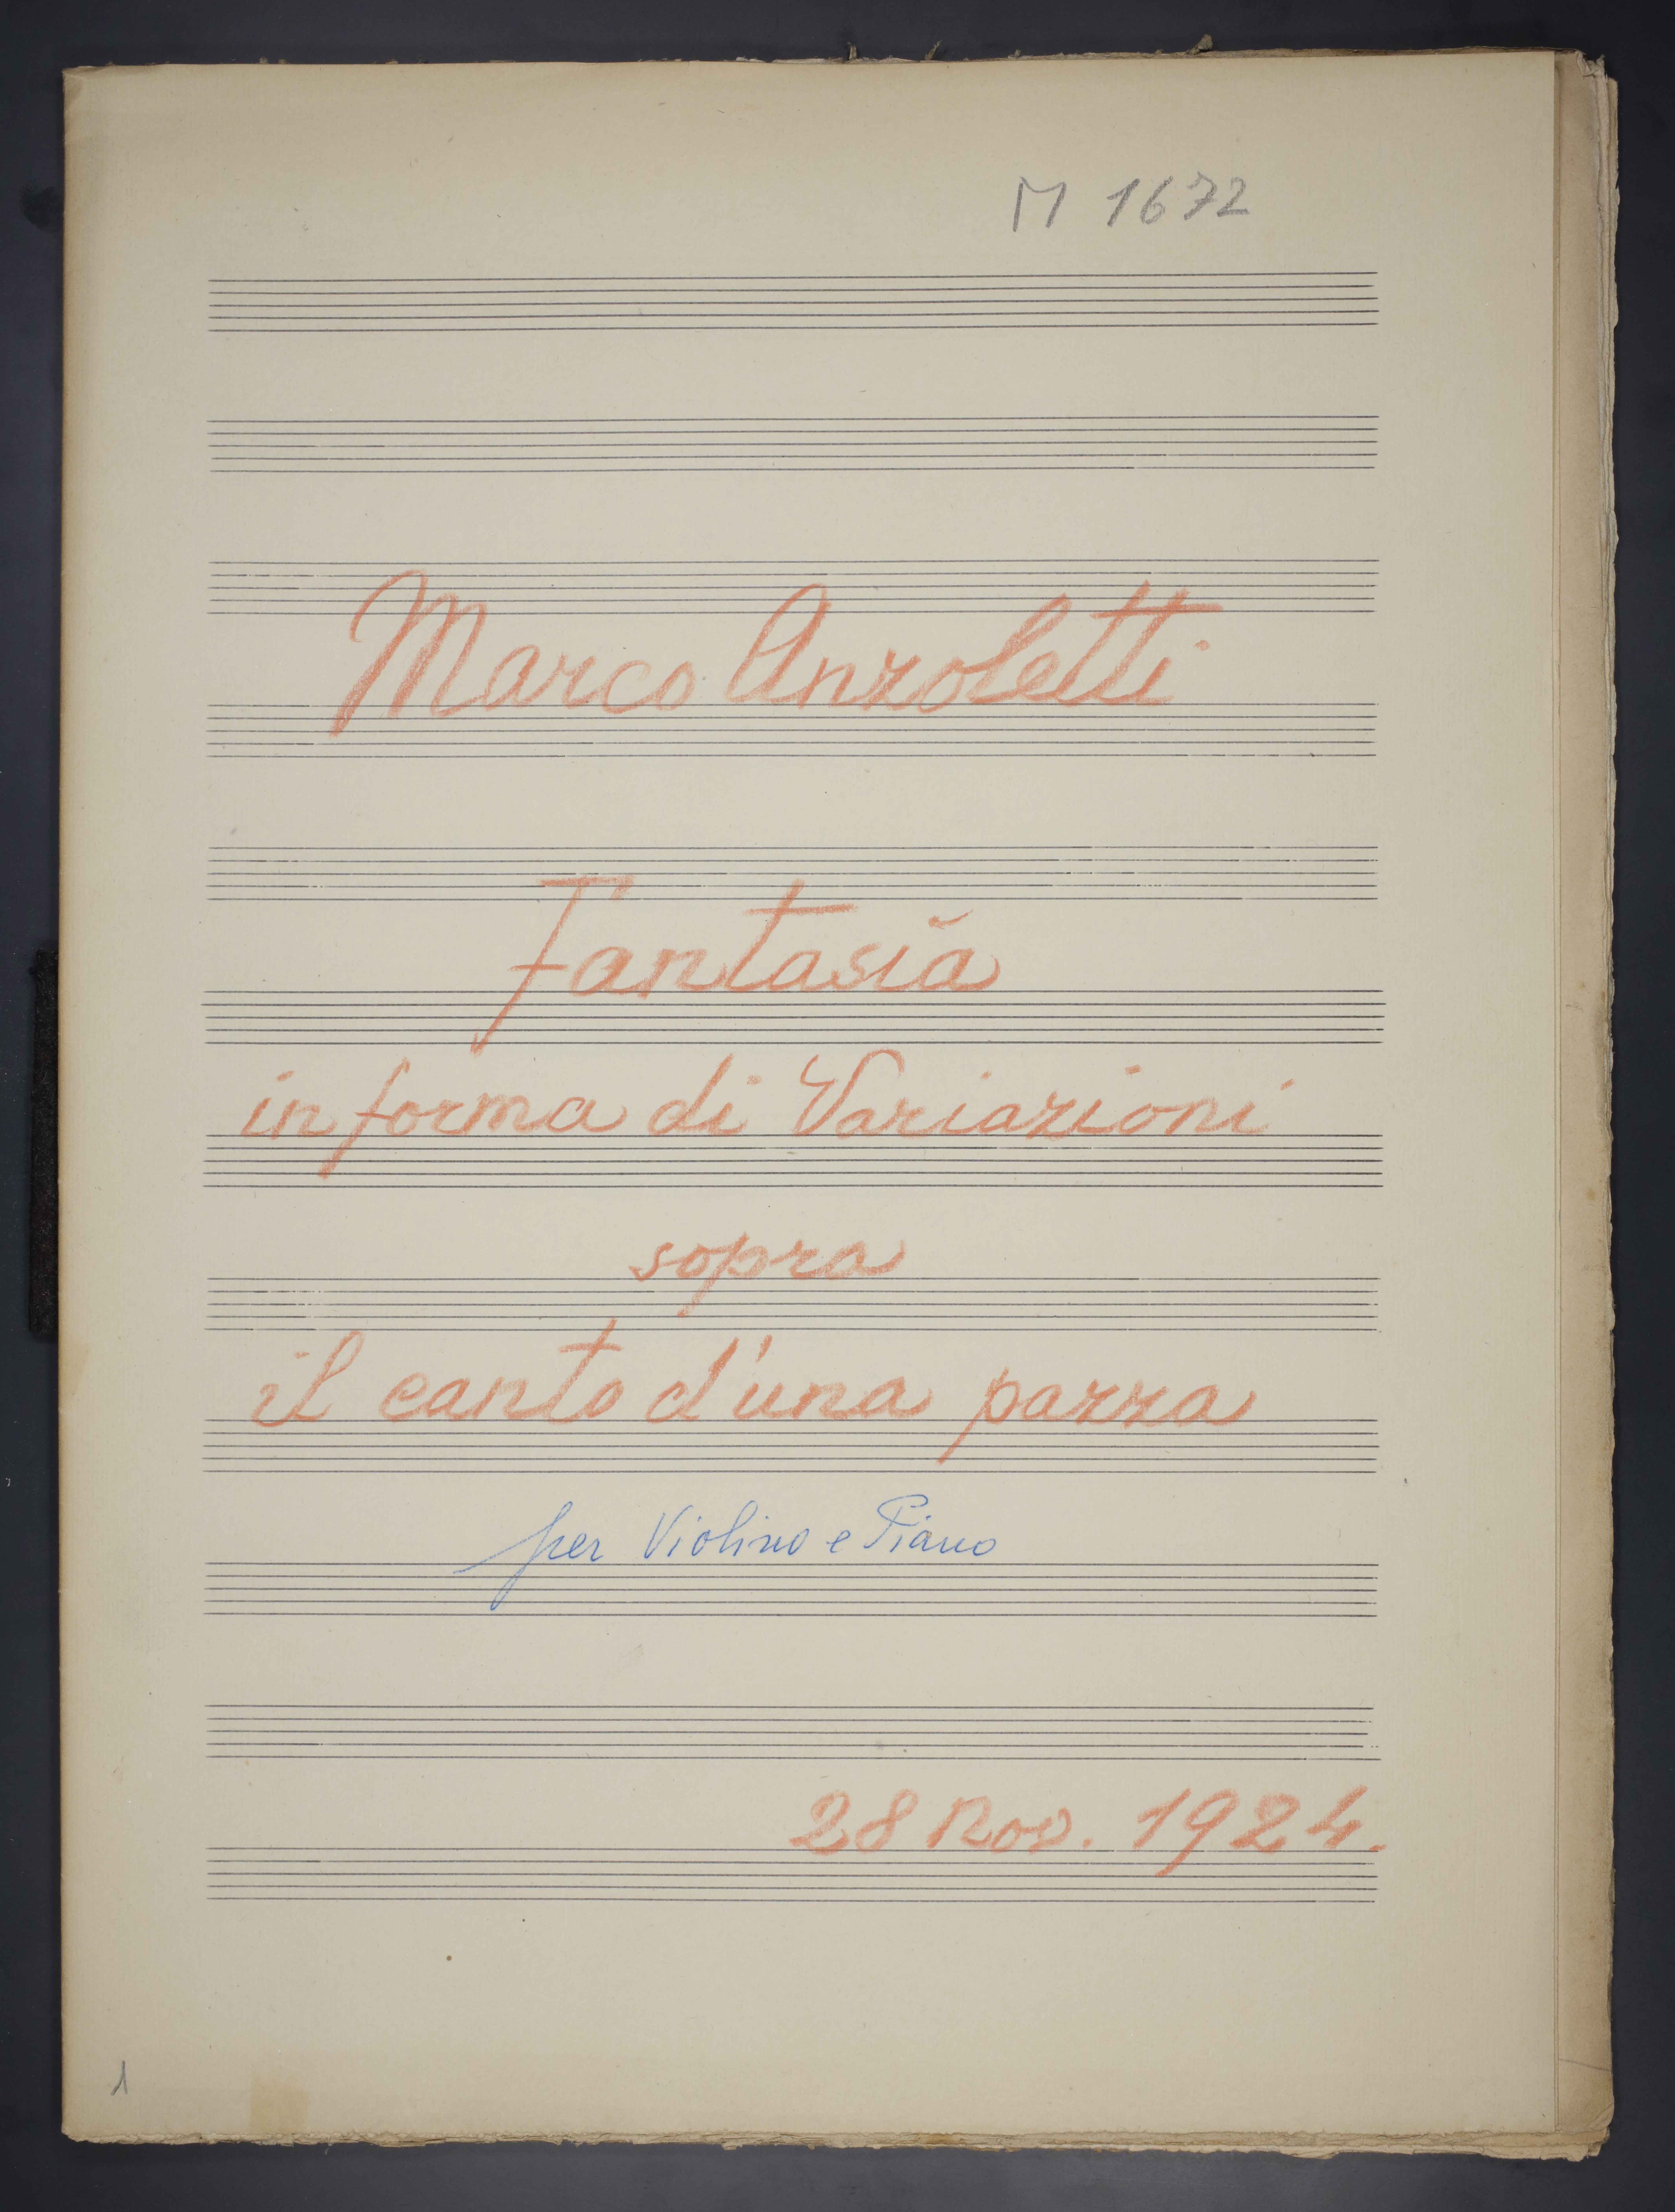 M 1672
Marco Anzoletti
Fantasia
in forma di Variazioni
sopra
il canto d'una pazza
per Violino e Piano
28 Nov. 1924.
1